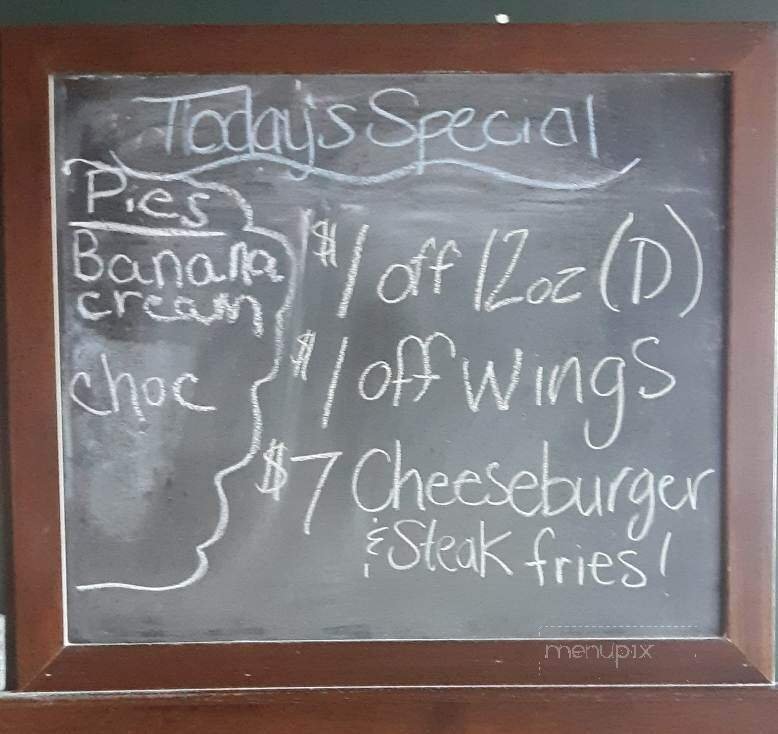 Today's Special
Pies
Banana
cream
choc
$1 off 12oz (D)
$1 off wings
$7 Cheeseburger
& Steak fries!
menupix